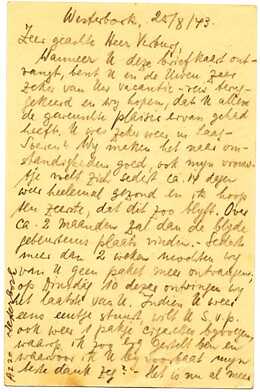 Westerbork, 25/8/43.
Zeer geachte Heer Verburg,
Wanneer U deze briefkaart ont-
vangt, bent U en de Uwen zeer
zeker van Uw vacantie-reis terug-
gekeerd en wij hopen, dat U allen
de gewenschte plaisir ervan gehad
heeft. U was zeker weer in Laag-
Soeren? Wij maken het naar om-
standigheden goed, ook mijn vrouw-
tje voelt zich sedert ca. 14 dagen
weer heelemaal gezond en ik hoop
ten zeerste, dat dit zoo blijft. Over
ca. 2 maanden zal dan de blijde
gebeurtenis plaats vinden. Sedert
meer dan 2 weken mochten wij
van U geen paket meer ontvangen,
op Dinsdag 10 dezer ontvingen wij
het laatste van U. Indien U weer
eens eentje stuurt, wilt U s.v.p.
ook weer 1 pakje cigaretten bijvoegen,
waarop ik zoo erg gesteld ben en
waarvoor ik U bij voorbaat mijn
beste dank zeg? - Het is nu al meer